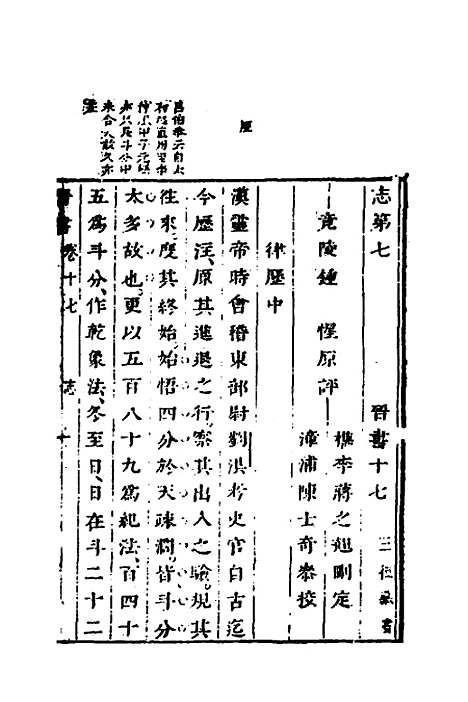 志第七 晉書十七 三徑藏書
竟陵鍾惺原評 檇李蔣之翹刪定
漳浦陳士奇參校
律歷中
漢靈帝時會稽東部尉劉洪考史官自古迄
今歷注、原其進退之行、察其出入之驗、規其
往來、度其終始、始悟四分於天疎濶、皆斗分
太多故也、更以五百八十九爲紀法、百四十
五爲斗分、作乾象法、冬至日、日在斗二十二
晉書 卷十七 志 十
歷